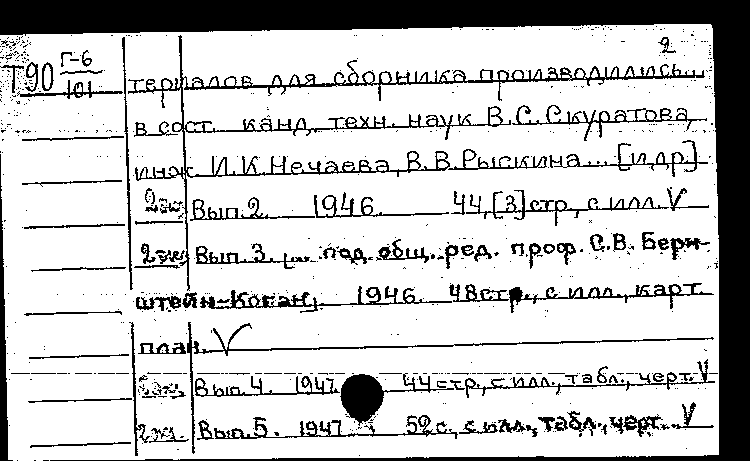 2
Т90 Г-6/101 териалов для сборника производились...
в сост. канд. техн. наук В.С.Скуратова,
инж. И.К.Нечаева, В.В.Рыскина... [и др.]
2экз Вып.2. 1946. 44,[3]стр., с илл. V
2экз Вып.3. ... под общ. ред. проф. С.В. Берн-
штейн-Коган, 1946. 48стр., с илл., карт.
план. V
экз. Вып.4. 1947. 44стр., с илл., табл., черт. V
2экз. Вып.5. 1947 52с., с илл., табл., черт. V